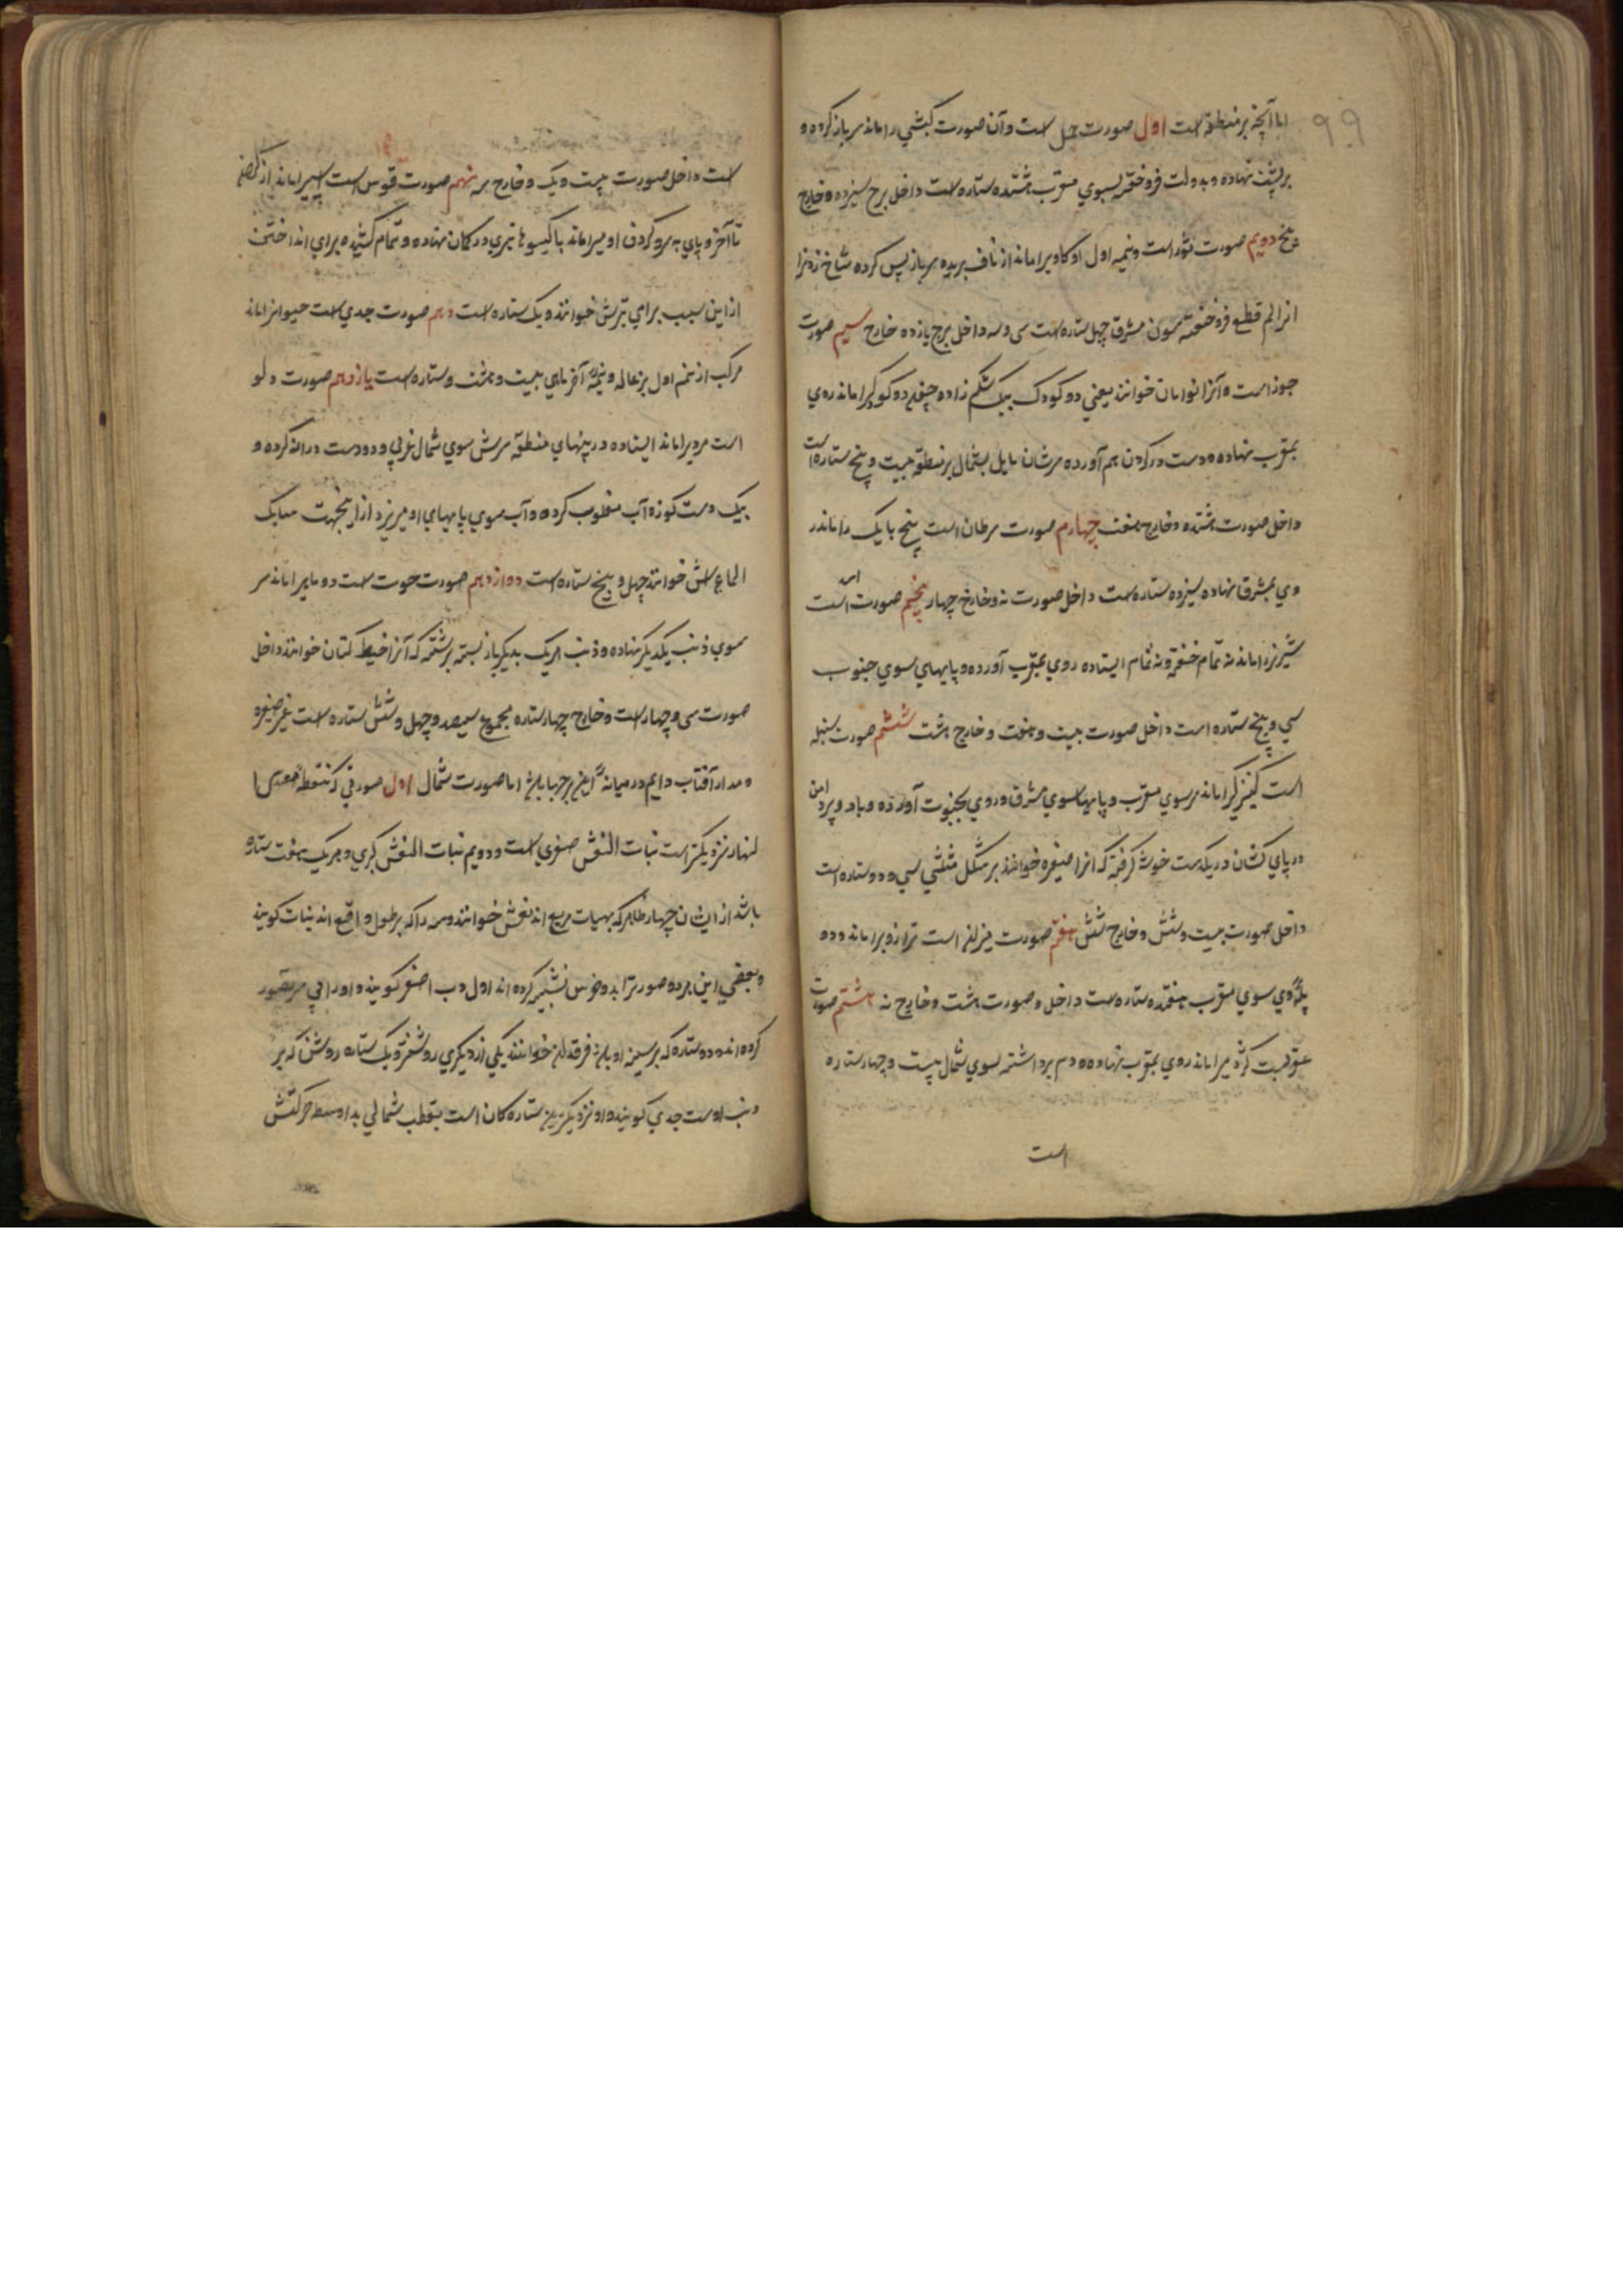 ۹۹
اما آنچه بر منطقه است اول صورت حمل است و آن صورت کبشی را ماند سر باز کرده و
بر پشت نهاده و بدولت فروخفته بسوي مغرب هشتده ستاره است داخل برج سیزده و خارج
پنج دویم صورت ثور است و نیمه اول او کاویرا ماند از ناف بریده سر باز پس کرده شاخ زدنرا
انرالم قطع فروخفته سون مشرق چهل ستاره است سی و سه داخل برج یازده خارج سیم صورت
جوزاست و آنرا توامان خوانند یعني دو کودک بیک شکم زاده چنانچه دو کودکرا ماند روي
بمغرب نهاده و دست در کردن هم آورده سرشان مایل بشمال بر منطقه بیست و پنج ستاره است
داخل صورت هشتده و خارج هفت چهارم صورت سرطان است پنج بایک را ماند
وي بمشرق نهاده سیزده ستاره است داخل صورت نه و خارج چهار پنجم صورت اسد است
شیر نررا ماند نه تمام خفته و نه تمام ایستاده روي بمغرب آورده و پایهاي سوي جنوب
سي و پنج ستاره است داخل صورت بیست و هفت و خارج هشت ششم صورت سنبله
است کنیزکرا ماند سر سوي مغرب و پایها سوي مشرق و روي بجنوب آورده و باد و پر دامن
در پاي کشان در یکدست خوشه کرفته که انرا ضفیره خوانند بر شکل مثلثي سي و دو ستاره است
داخل صورت بیست و شش و خارج شش هفتم صورت میزان است ترازویرا ماند و دو
پلهٔ وي سوي مغرب هفتده ستاره است داخل و صورت هشت و خارج نه هشتم صورت
عقربست کژدمیرا ماند روي بمغرب نهاده و دم برداشته بسوي شمال بیست و چهار ستاره
است
است داخل صورت بیست و یک و خارج سه نهم صورت قوس است اسپیرا ماند از
تا آخر و پاي به سرو کردن او میرا ماند با کیسوها تیري در کمان نهاده و تمام کشیده براي انداختن
از این سبب براي تیرش خوانند و یک ستاره است دهم صورت جدي است حیوانرا ماند
مرکب از نیم اول بزغاله و نیمه آخر ماهي بیست و هشت و ستاره است یازدهم صورت دلو
است مردیرا ماند ایستاده در پنهاي منطقه سرش سوي شمال غربي و دو دست دراز کرده و
بیک دست کوزه آب مقلوب کرده و آب سوي پایهاي او میریزد از اینجهت
خوانند چهل و پنج ستاره است دوازدهم صورت حوت است دو ماهیرا ماند سر
سوي ذنب یکدیکر نهاده و ذنب هر یک بدیکر باز بسته برشته که آنرا خیط کتان خوانند داخل
صورت سی و چهار است و خارج چهار ستاره مجموع سیصد و چهل و شش ستاره است غیر ضفیره
و مدار آفتاب دایم در میانهٔ این برجها باشد اما صورت شمال اول صورتي که نقطهٔ معدل
النهار نزدیکتر است نبات النعش صغري است و دویم نبات النعش کبري و هر یک هفت ستاره
باشد از ایشان چهار ظاهر که بهیات مربع اند نعش خوانند و سه را که بر طول واقع اند نبات کویند
و بعضي این هر دو صورترا بدو خرس تشبیه کرده اند اول دب اصغر کویند و او را قي تصور
کرده اند و دو ستاره که بر سینه او باشد فرقدان خوانند یکي از دیکري روشنتر و یک ستاره روشن که بر
دنب اوست جدي کویند و او نزدیکترین ستاره کان است بقطب شمالي بداوسط حرکتش